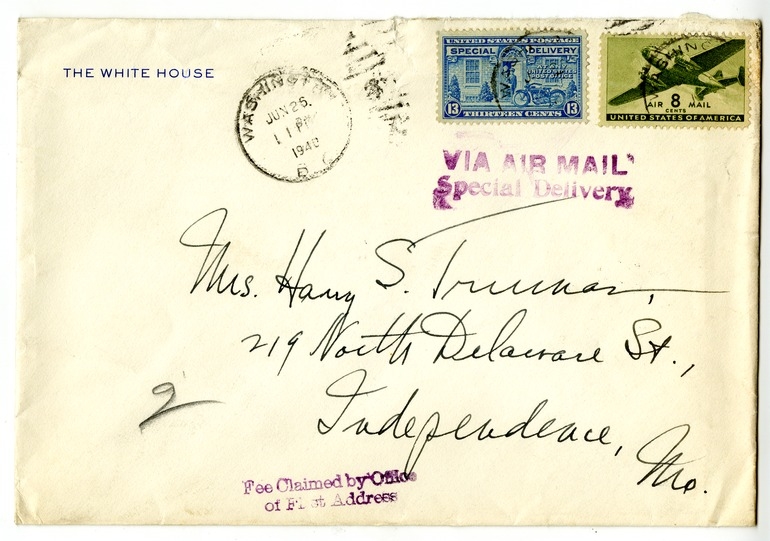 THE WHITE HOUSE
WASHINGTON
JUN 25
11 PM
194
D.C.
UNITED STATES POSTAGE
SPECIAL DELIVERY
AT ANY
UNITED STATES
POST OFFICE
13 13
THIRTEEN CENTS
WASHING
AIR 8 MAIL
CENTS
UNITED STATES OF AMERICA
VIA AIR MAIL
Special Delivery
Mrs. Harry S. Truman,
219 North Delaware St.,
Independence,
Mo.
2
Fee Claimed by Office
of First Address